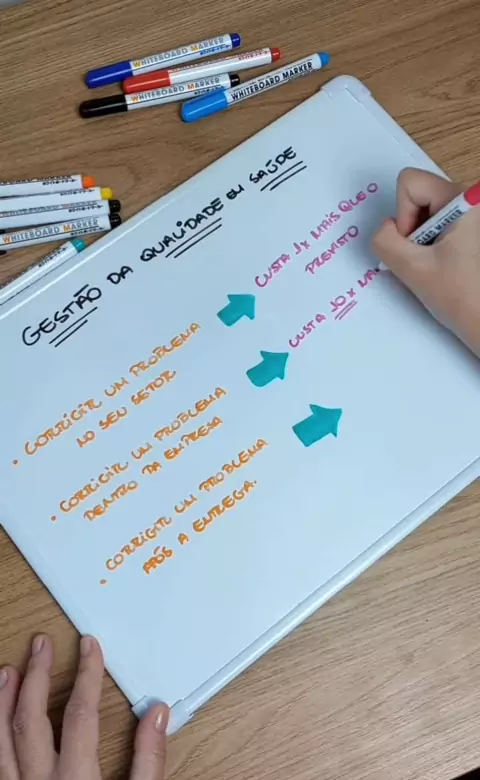 WHITEBOARD MARKER
WHITEBOARD MARKER
WHITEBOARD MARKER
WHITEBOARD MARKER
WHITEBOARD MARKER
GESTÃO DA QUALIDADE EM SAÚDE
• CORRIGIR UM PROBLEMA
NO SEU SETOR
CUSTA 1X MAIS QUE O
PREVISTO
• CORRIGIR UM PROBLEMA
DENTRO DA EMPRESA
CUSTA 10X MA
• CORRIGIR UM PROBLEMA
APÓS A ENTREGA.